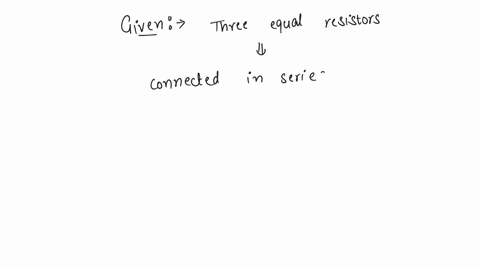 Given:→ Three equal resistors
⇓
connected in serie